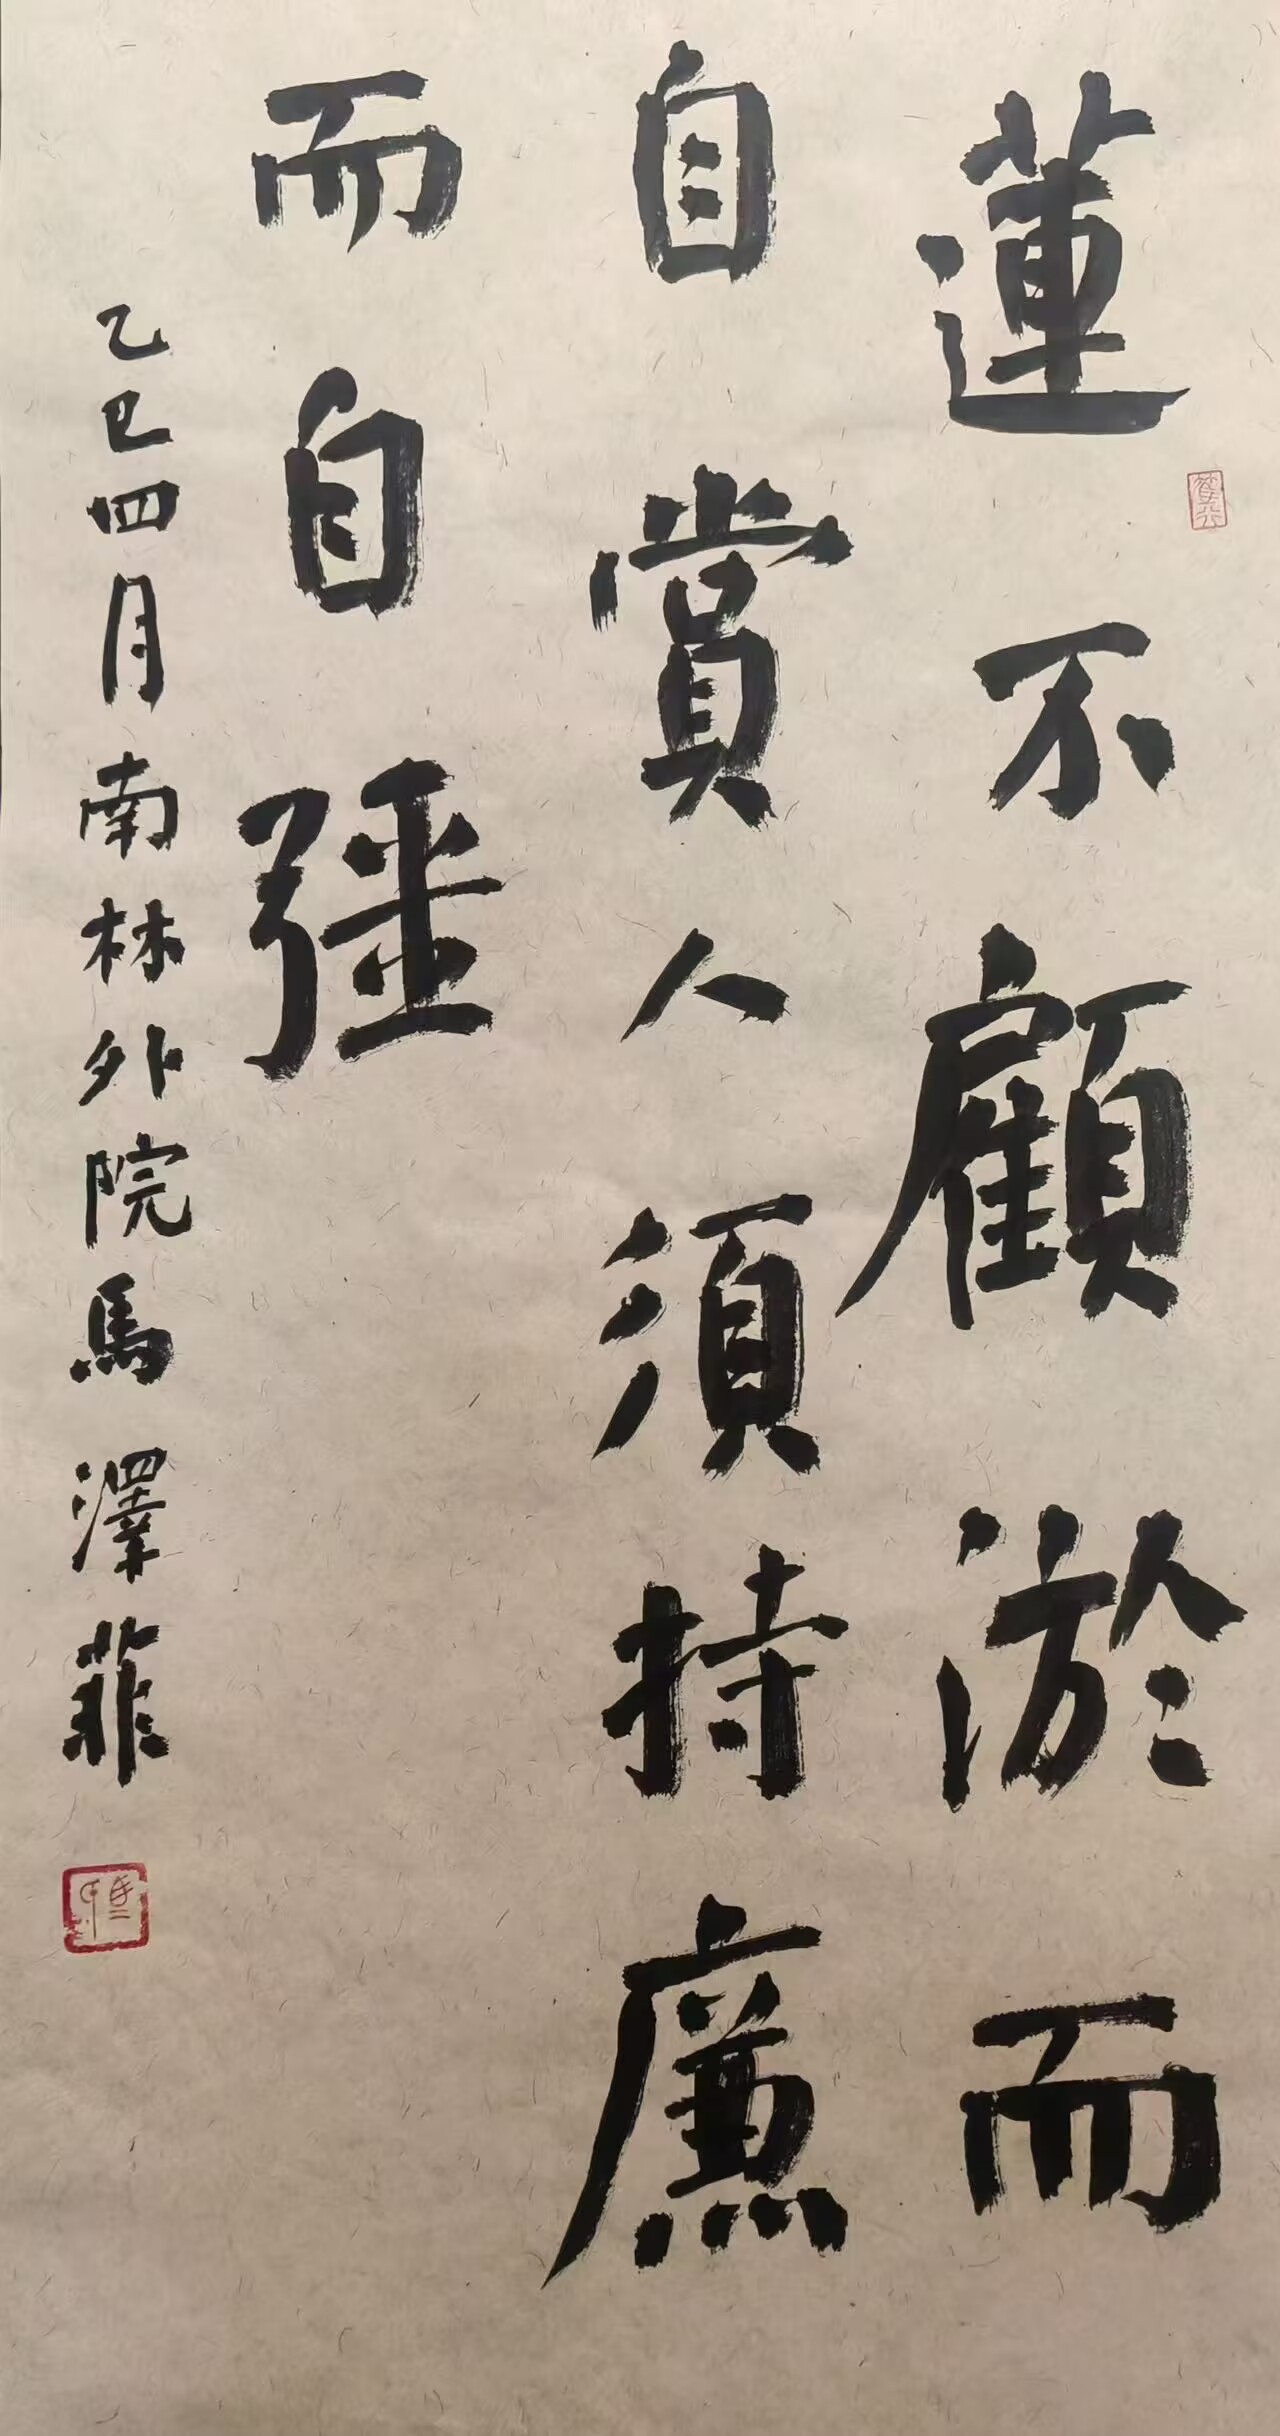 蓮不顧淤而
自賞人須持廉
而自彊
乙巳四月南林外院馬澤菲